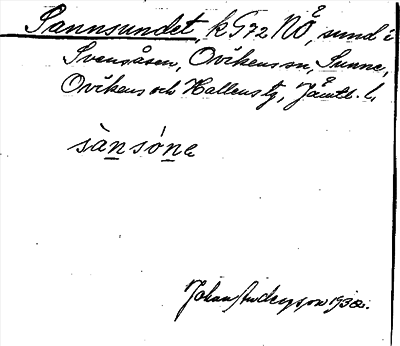 Sannsundet, k G72 NÖ, sund i
Svensåsen, Ovikens sn, Sunne,
Ovikens och Hallens tg, Jämtl. l.
sànsóne
Johan Anderzon 1932.